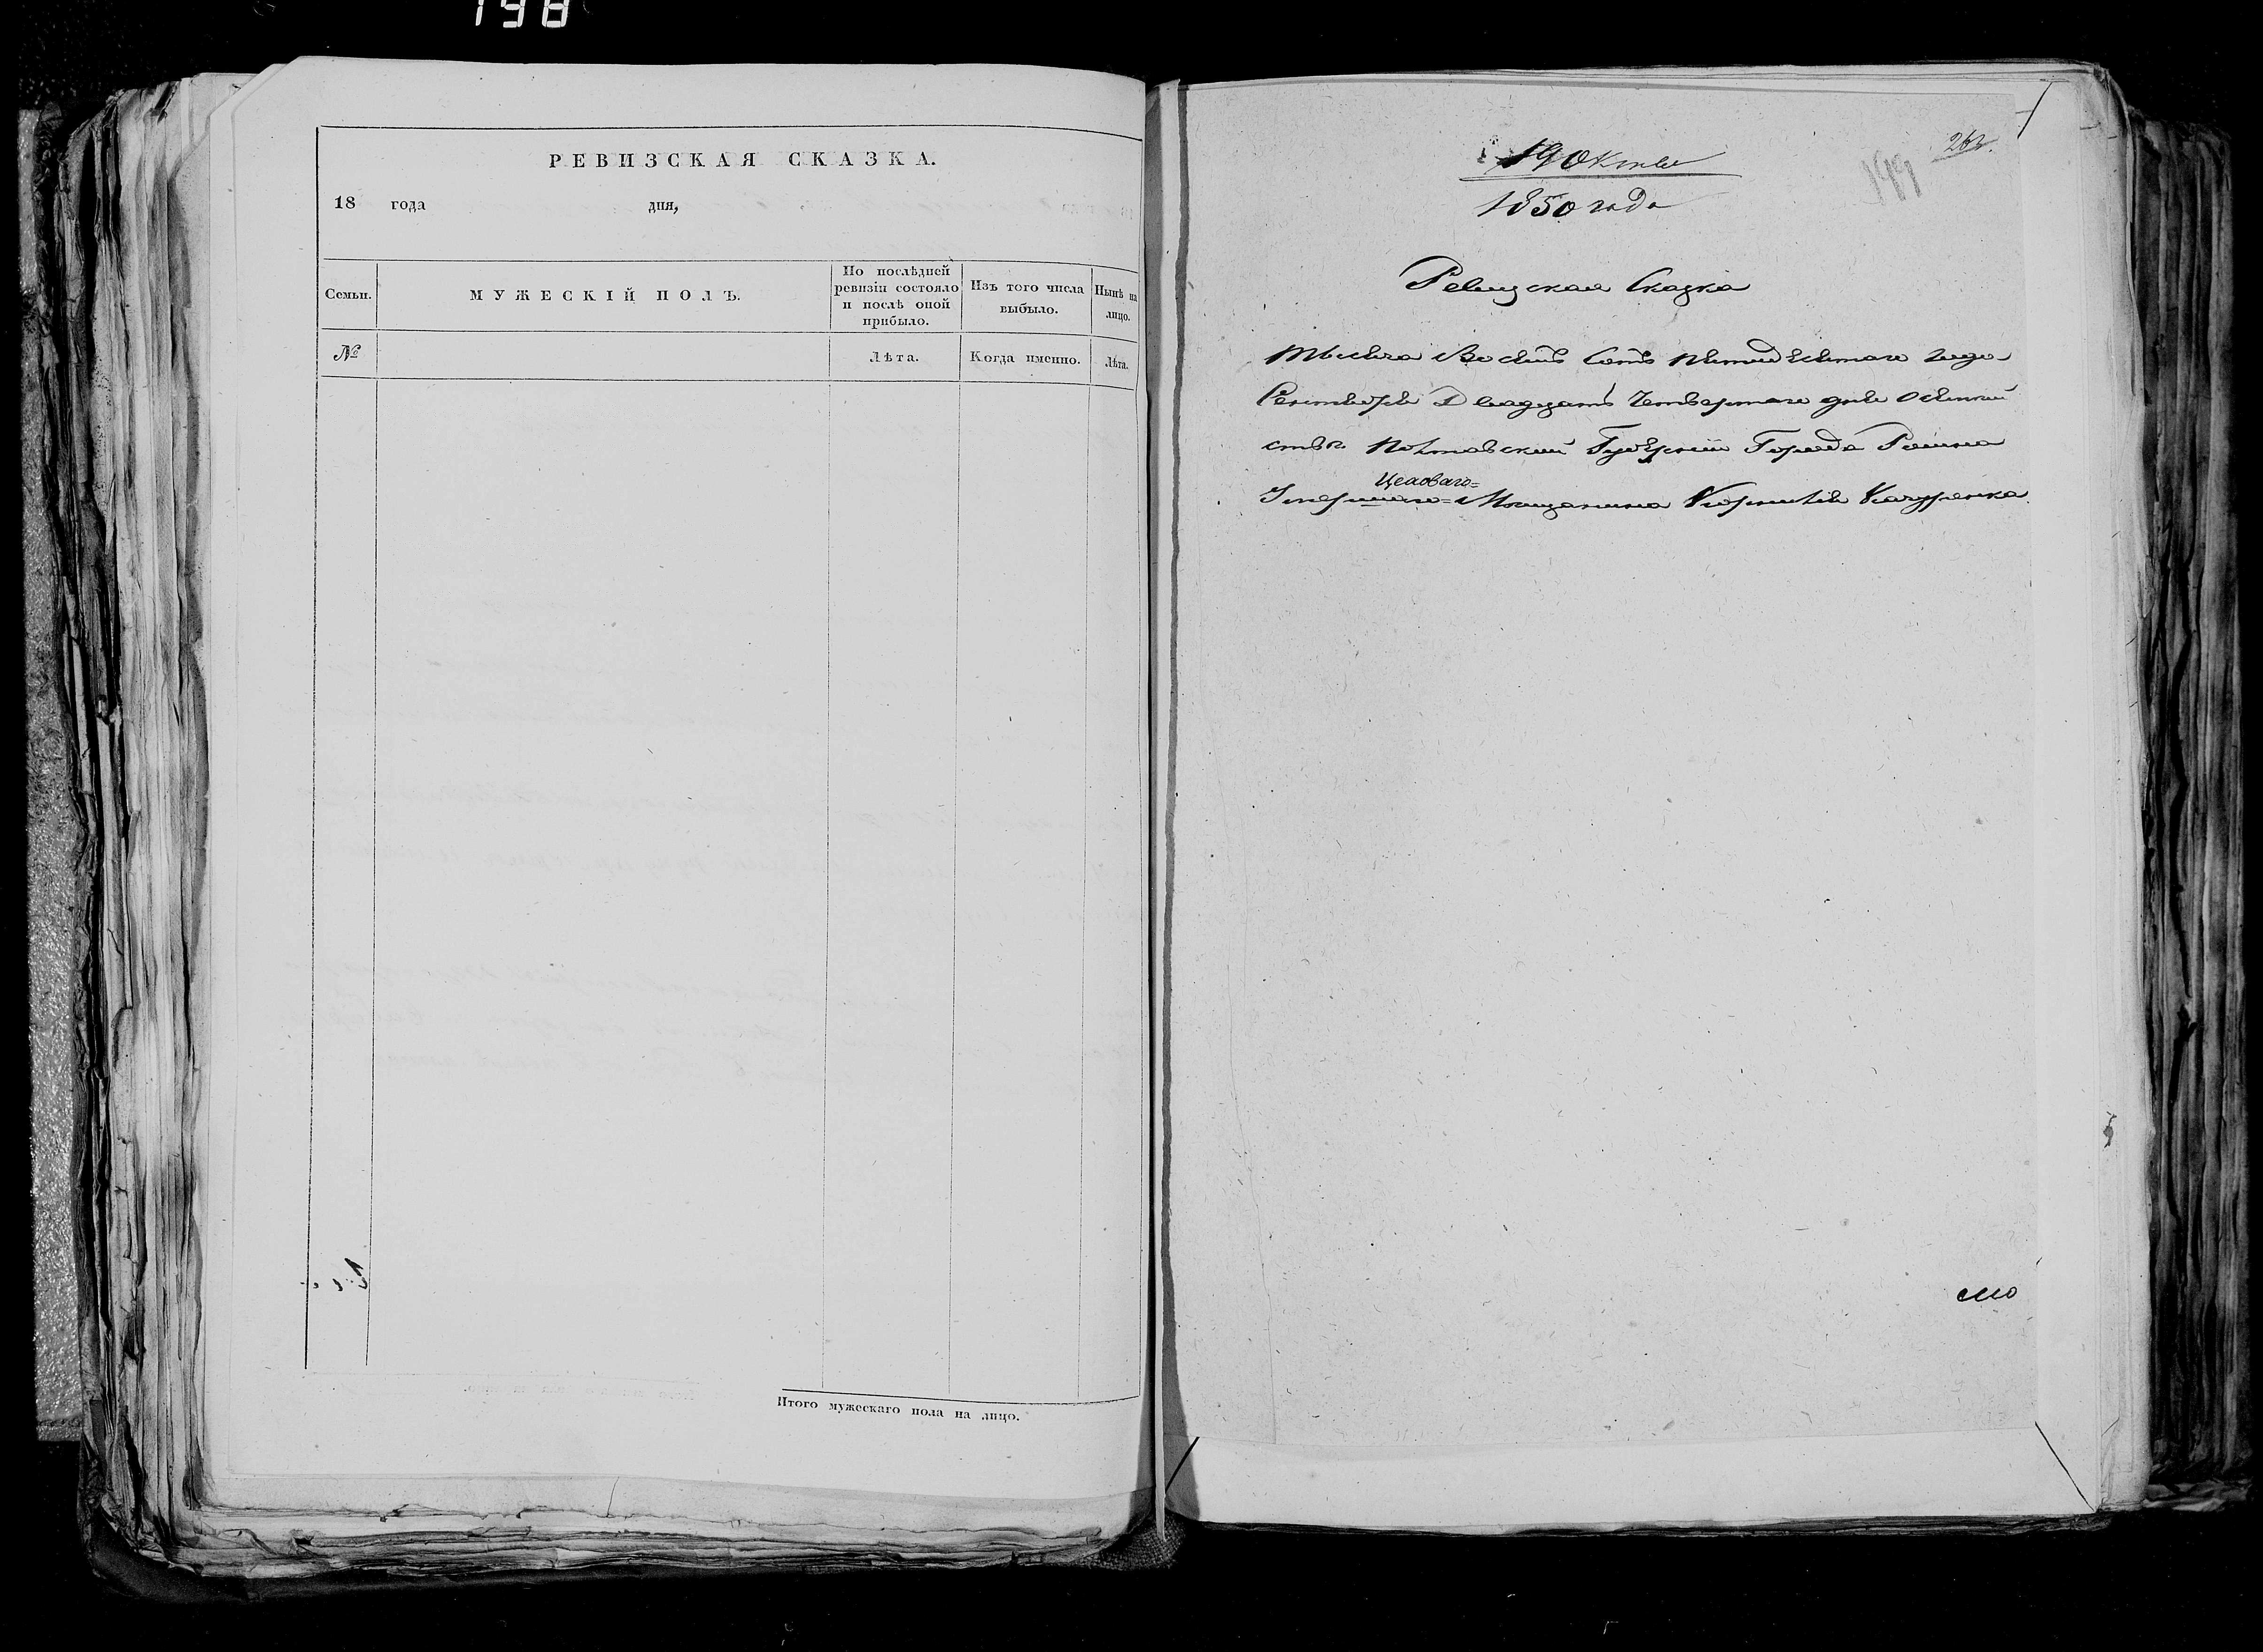 198
РЕВИЗСКАЯ СКАЗКА.
18 года дня,
Семьи.
МУЖЕСКІЙ ПОЛЪ.
По послѣдней ревизіи состояло и послѣ оной прибыло.
Изъ того числа выбыло.
Нынѣ на лицо.
№
Лѣта.
Когда именно.
Лѣта.
Итого мужескаго пола на лицо.
199
19 Октяб
1850 года
Ревизская Сказка
Тысяча Восемь Сотъ пятидесятаго года
Сентября Двадцать Четвертаго дня
Полтавской Губерніи Города Ромна
Цеховаго=
Мещанина Корнилія Качуренка